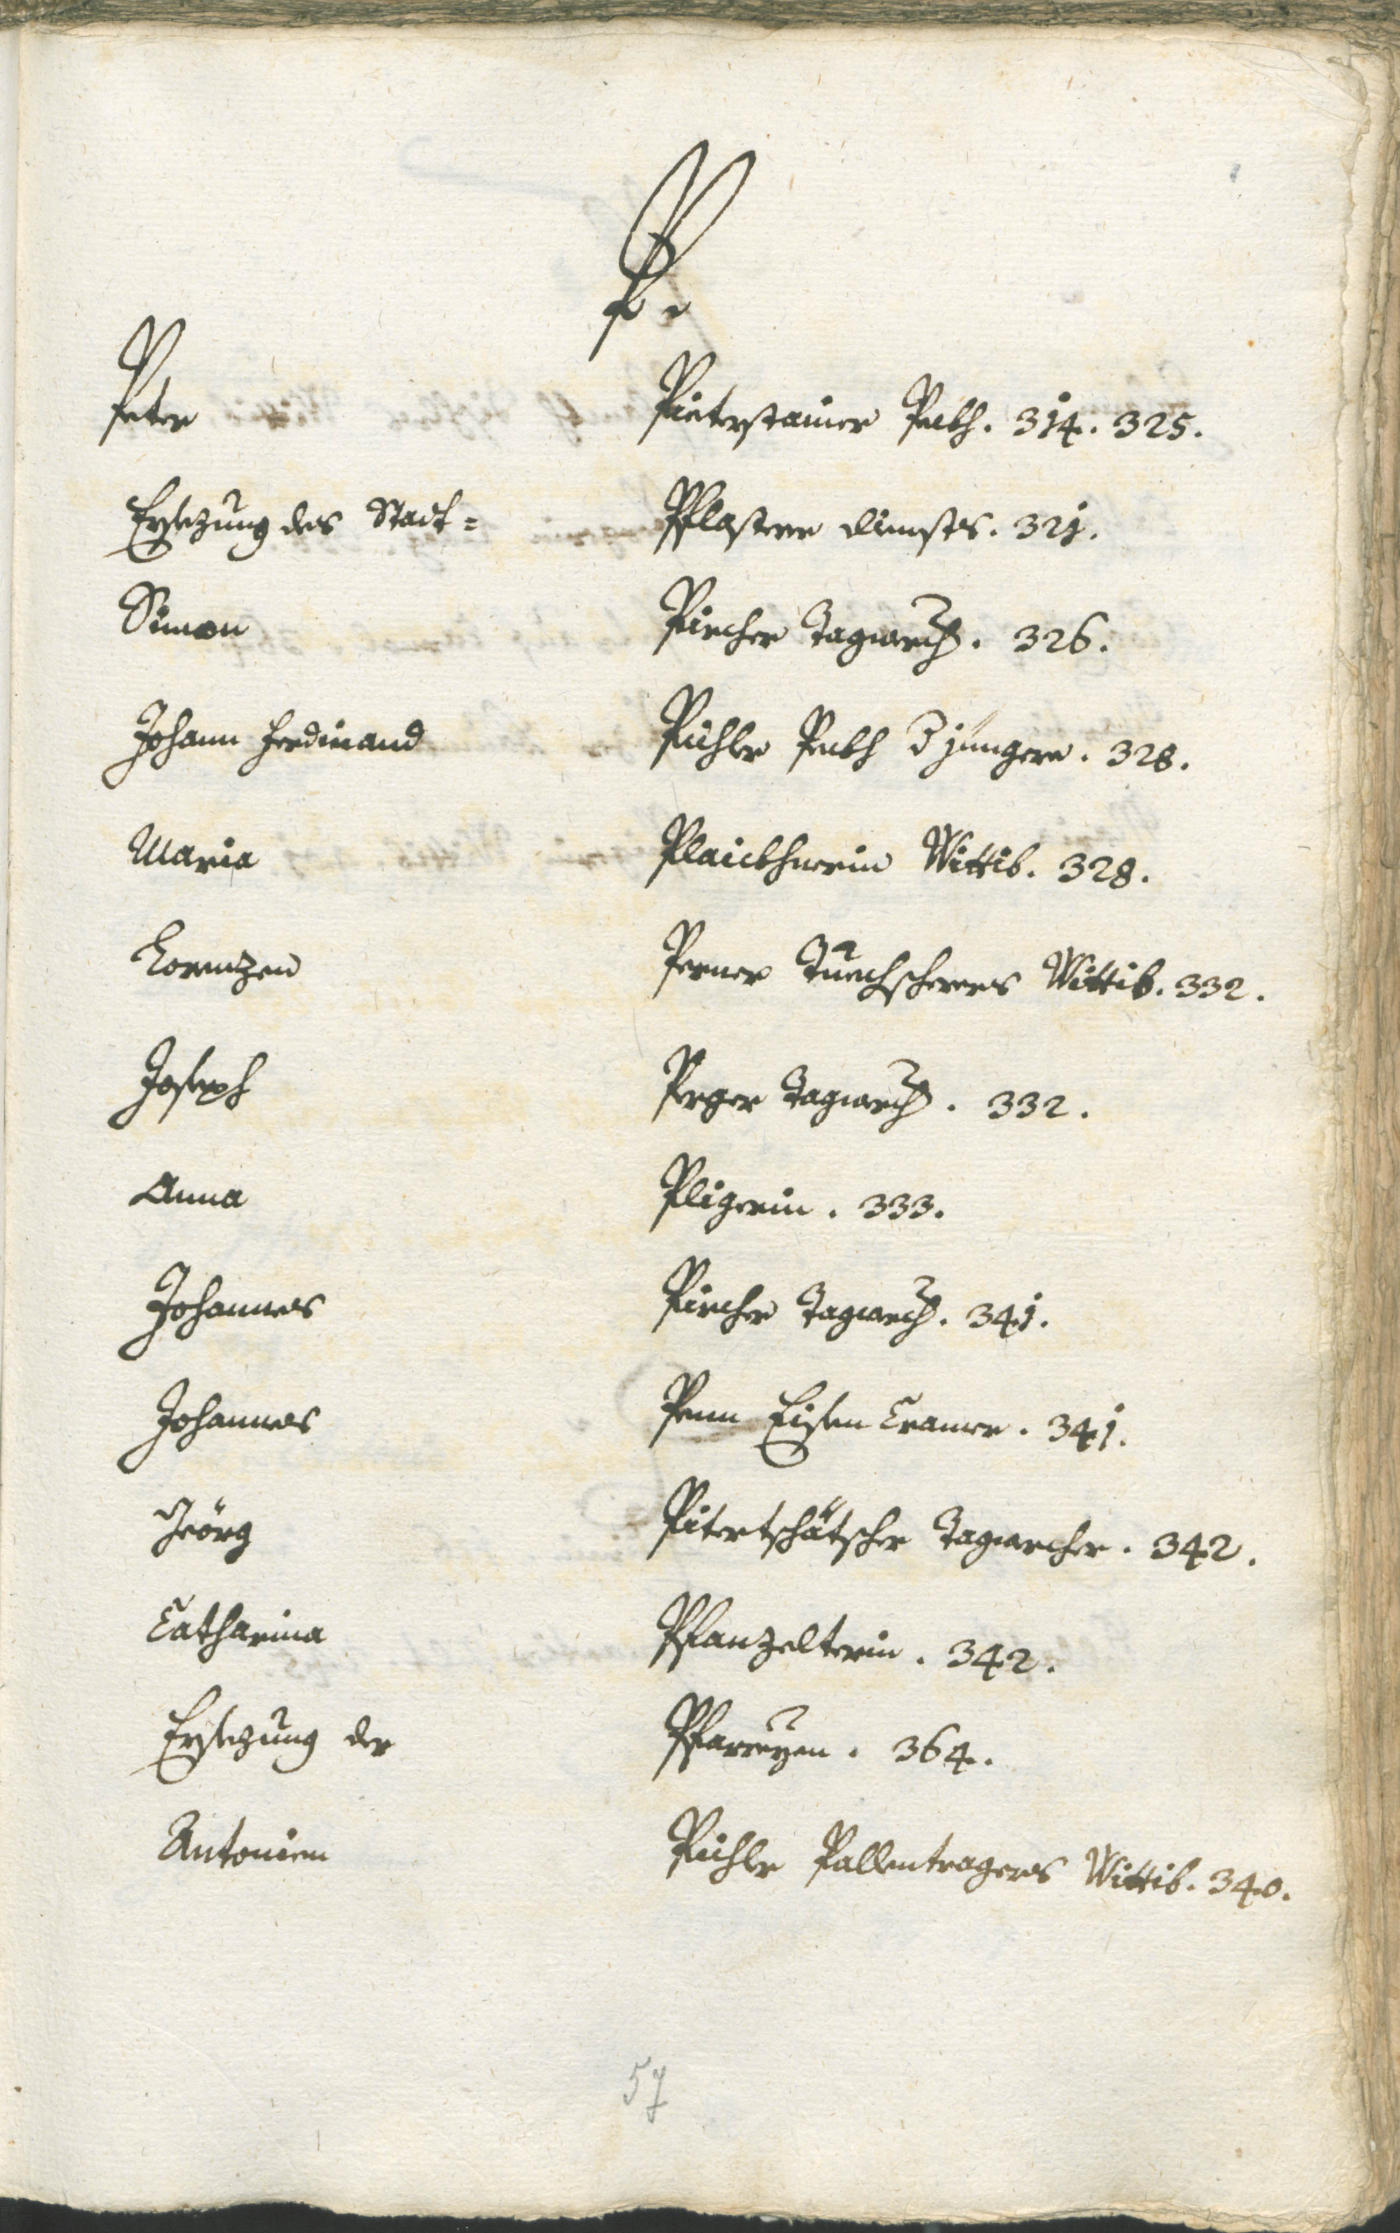 P.
Peter Pieterstainer Peckh. 314. 325.
Ersezung des Stadt= Pflasterer dienstes. 321.
Simon Pircher Tagwerch. 326.
Johann Ferdinand Pichler Peckh d jüngere. 328.
Maria Plaickhnerin Wittib. 328.
Lorentzen Perner Tuechscherers Wittib. 332.
Joseph Perger Tagwerch. 332.
Anna Pligerin. 333.
Johannes Pircher Tagwerch. 341.
Johannes Penn Eisen Cramer. 341.
Jeörg Pitertschätscher Tagwercher. 342.
Catharina Pfanzelterin. 342.
Ersezung der Pfarreyen. 364.
Antonien Pichler Pallentragers Wittib. 340.
57